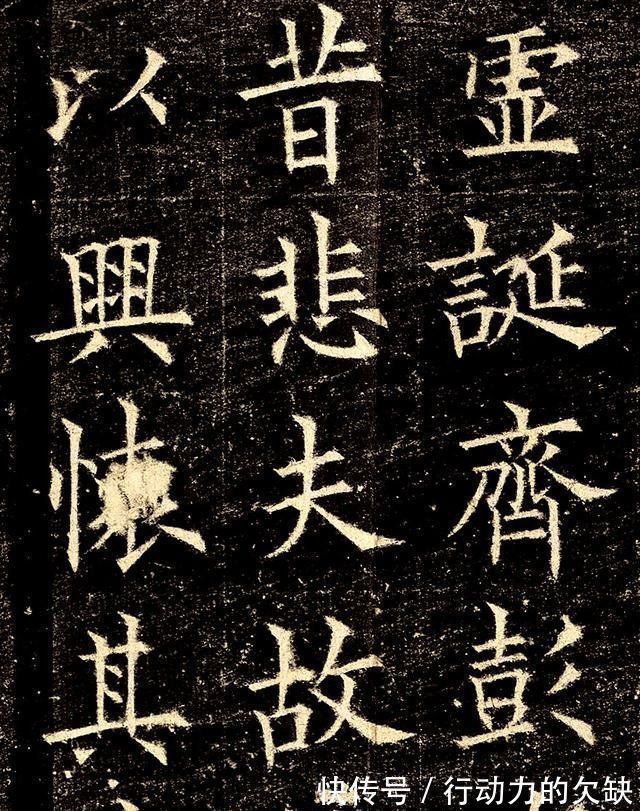 虛誕齊彭
昔悲夫故
以興懷其
快传号 / 行动力的欠缺